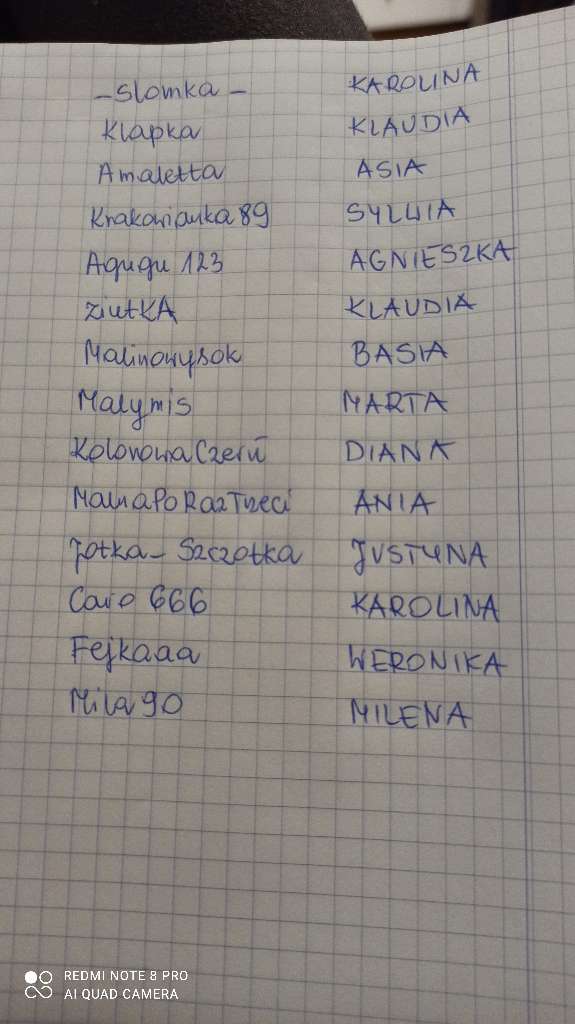 -Slomka- KAROLINA
Klapka KLAUDIA
Amaletta ASIA
Krakowianka89 SYLWIA
Agugu 123 AGNIESZKA
ziutKA KLAUDIA
Malinowysok BASIA
Malymis MARTA
KolorowaCzerń DIANA
MamaPoRazTrzeci ANIA
Jotka-Szczotka JUSTYNA
Caro 666 KAROLINA
Fejkaaa WERONIKA
Mila90 MILENA
REDMI NOTE 8 PRO
AI QUAD CAMERA